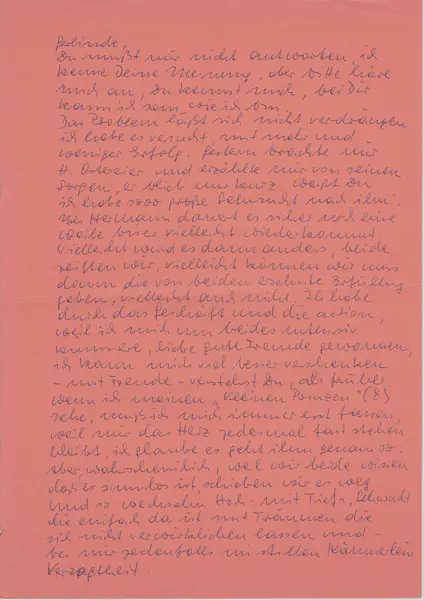 Gerlinde,
Du mußt mir nicht antworten, ich
kenne Deine Meinung, aber bitte höre
mich an, Du kennst mich, bei Dir
kann ich sein wie ich bin.
Das Problem läßt sich nicht verdrängen
ich habe es versucht, mit mehr und
weniger Erfolg. Gestern brachte mir
H. Ostereier und erzählte mir von seinen
Sorgen, er blieb nur kurz, weißt Du
ich habe sooo große Sehnsucht nach ihm.
Bei Hermann dauert es sicher noch eine
Weile bis er vielleicht wiederkommt.
Vielleicht wird es dann anders, beide
reiften wir, vielleicht können wir uns
dann die von beiden ersehnte Erfüllung
geben, vielleicht auch nicht. Ich habe
durch das Geschäft und die action,
weil ich mich um beides intensiv
kümmere, liebe gute Freunde gewonnen,
ich kann mich viel besser verschenken
- mit Freude - verstehst Du, als früher
wenn ich meinen "kleinen Prinzen"
sehe, muß ich mich immer erst fassen,
weil mir das Herz jedesmal fast stehen
bleibt, ich glaube es geht ihm genau so.
Aber wahrscheinlich, weil wir beide wissen
daß es sinnlos ist, schieben wir es weg.
Und so wechseln Hoch- mit Tiefs, Sehnsucht
die einfach da ist mit Träumen die
sich nicht verwirklichen lassen und -
bei mir jedenfalls im stillen Kämmerlein
Verzagtheit.